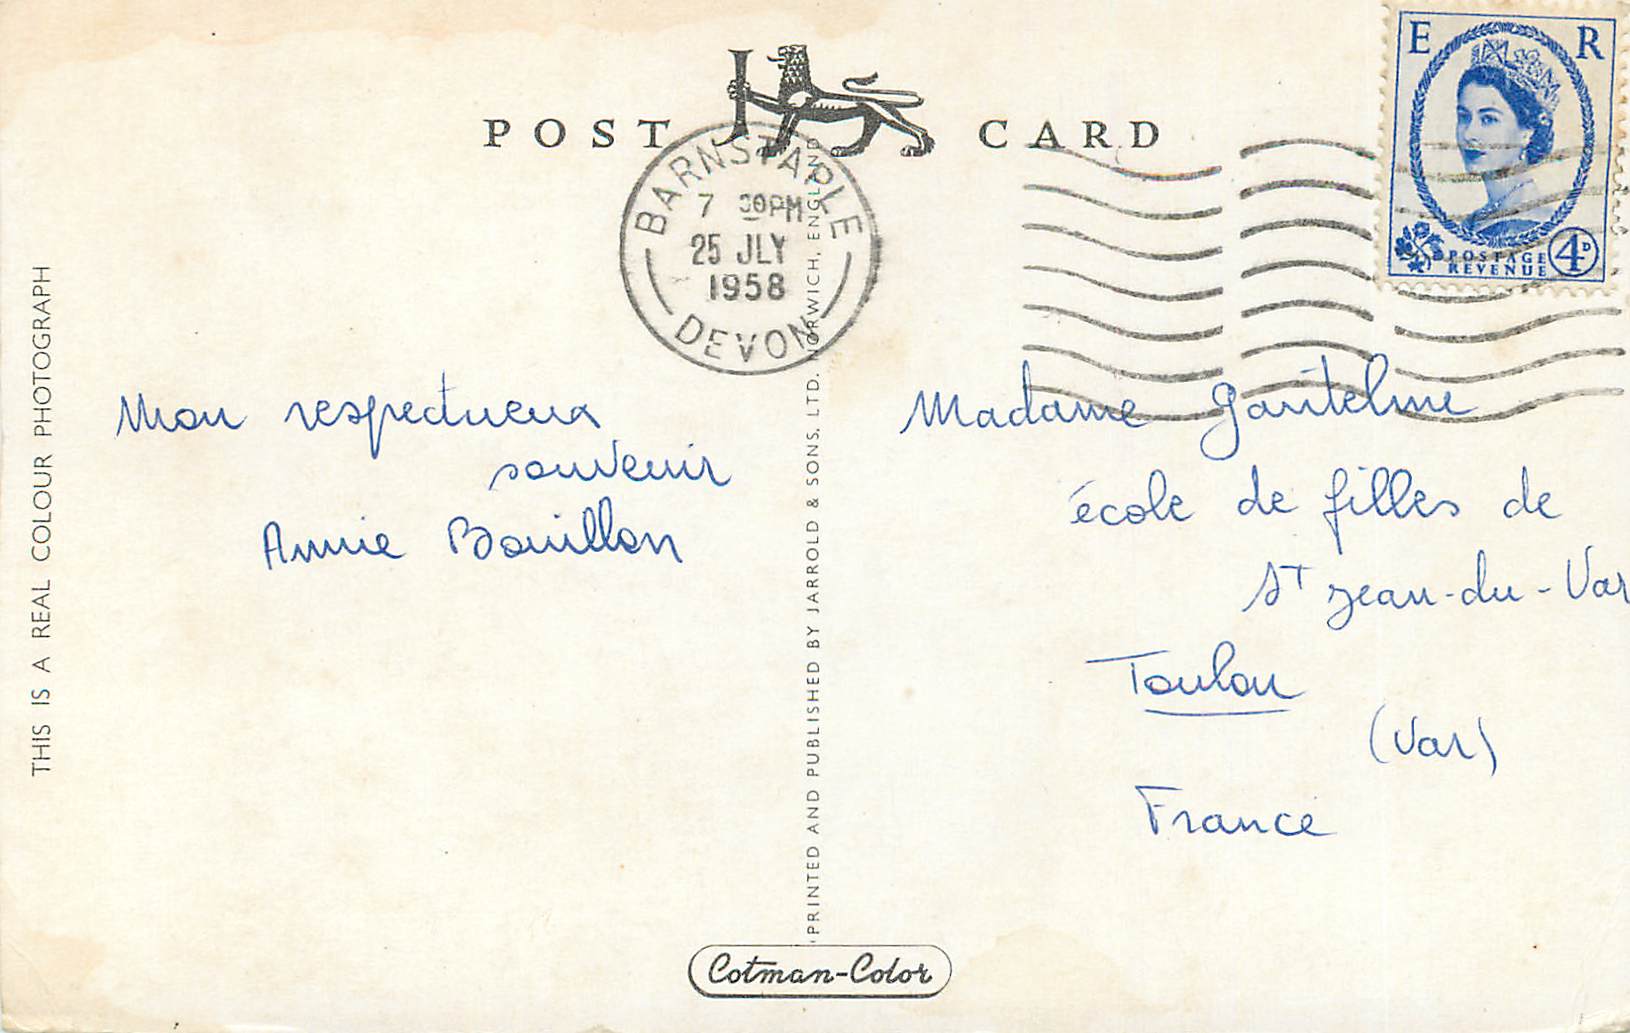 POST CARD
E R
POSTAGE
REVENUE
4D
BARNSTAPLE
7 30PM
25 JLY
1958
DEVON
THIS IS A REAL COLOUR PHOTOGRAPH
Mon respectueux
souvenir
Annie Bouillon
PRINTED AND PUBLISHED BY JARROLD & SONS, LTD. NORWICH, ENGLAND
Madame
école de filles de
St Jean-du-Var
Toulon
(Var)
France
Cotman-Color